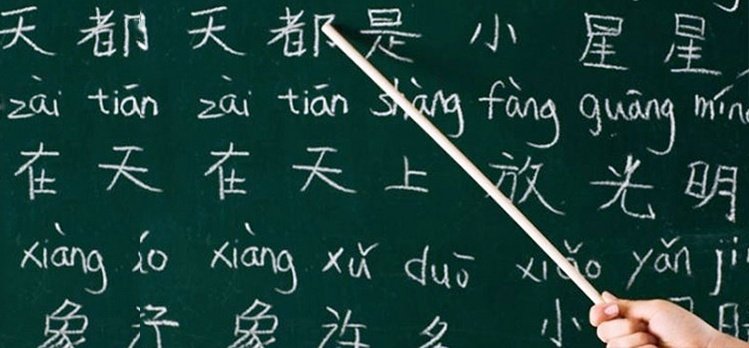 天 都 天 都 是 小 星 星
zài tiān zài tiān shàng fàng guāng
在 天 在 天 上 放 光 明
xiàng xiàng xǔ duō xiǎo yǎn
象 象 许 多 小